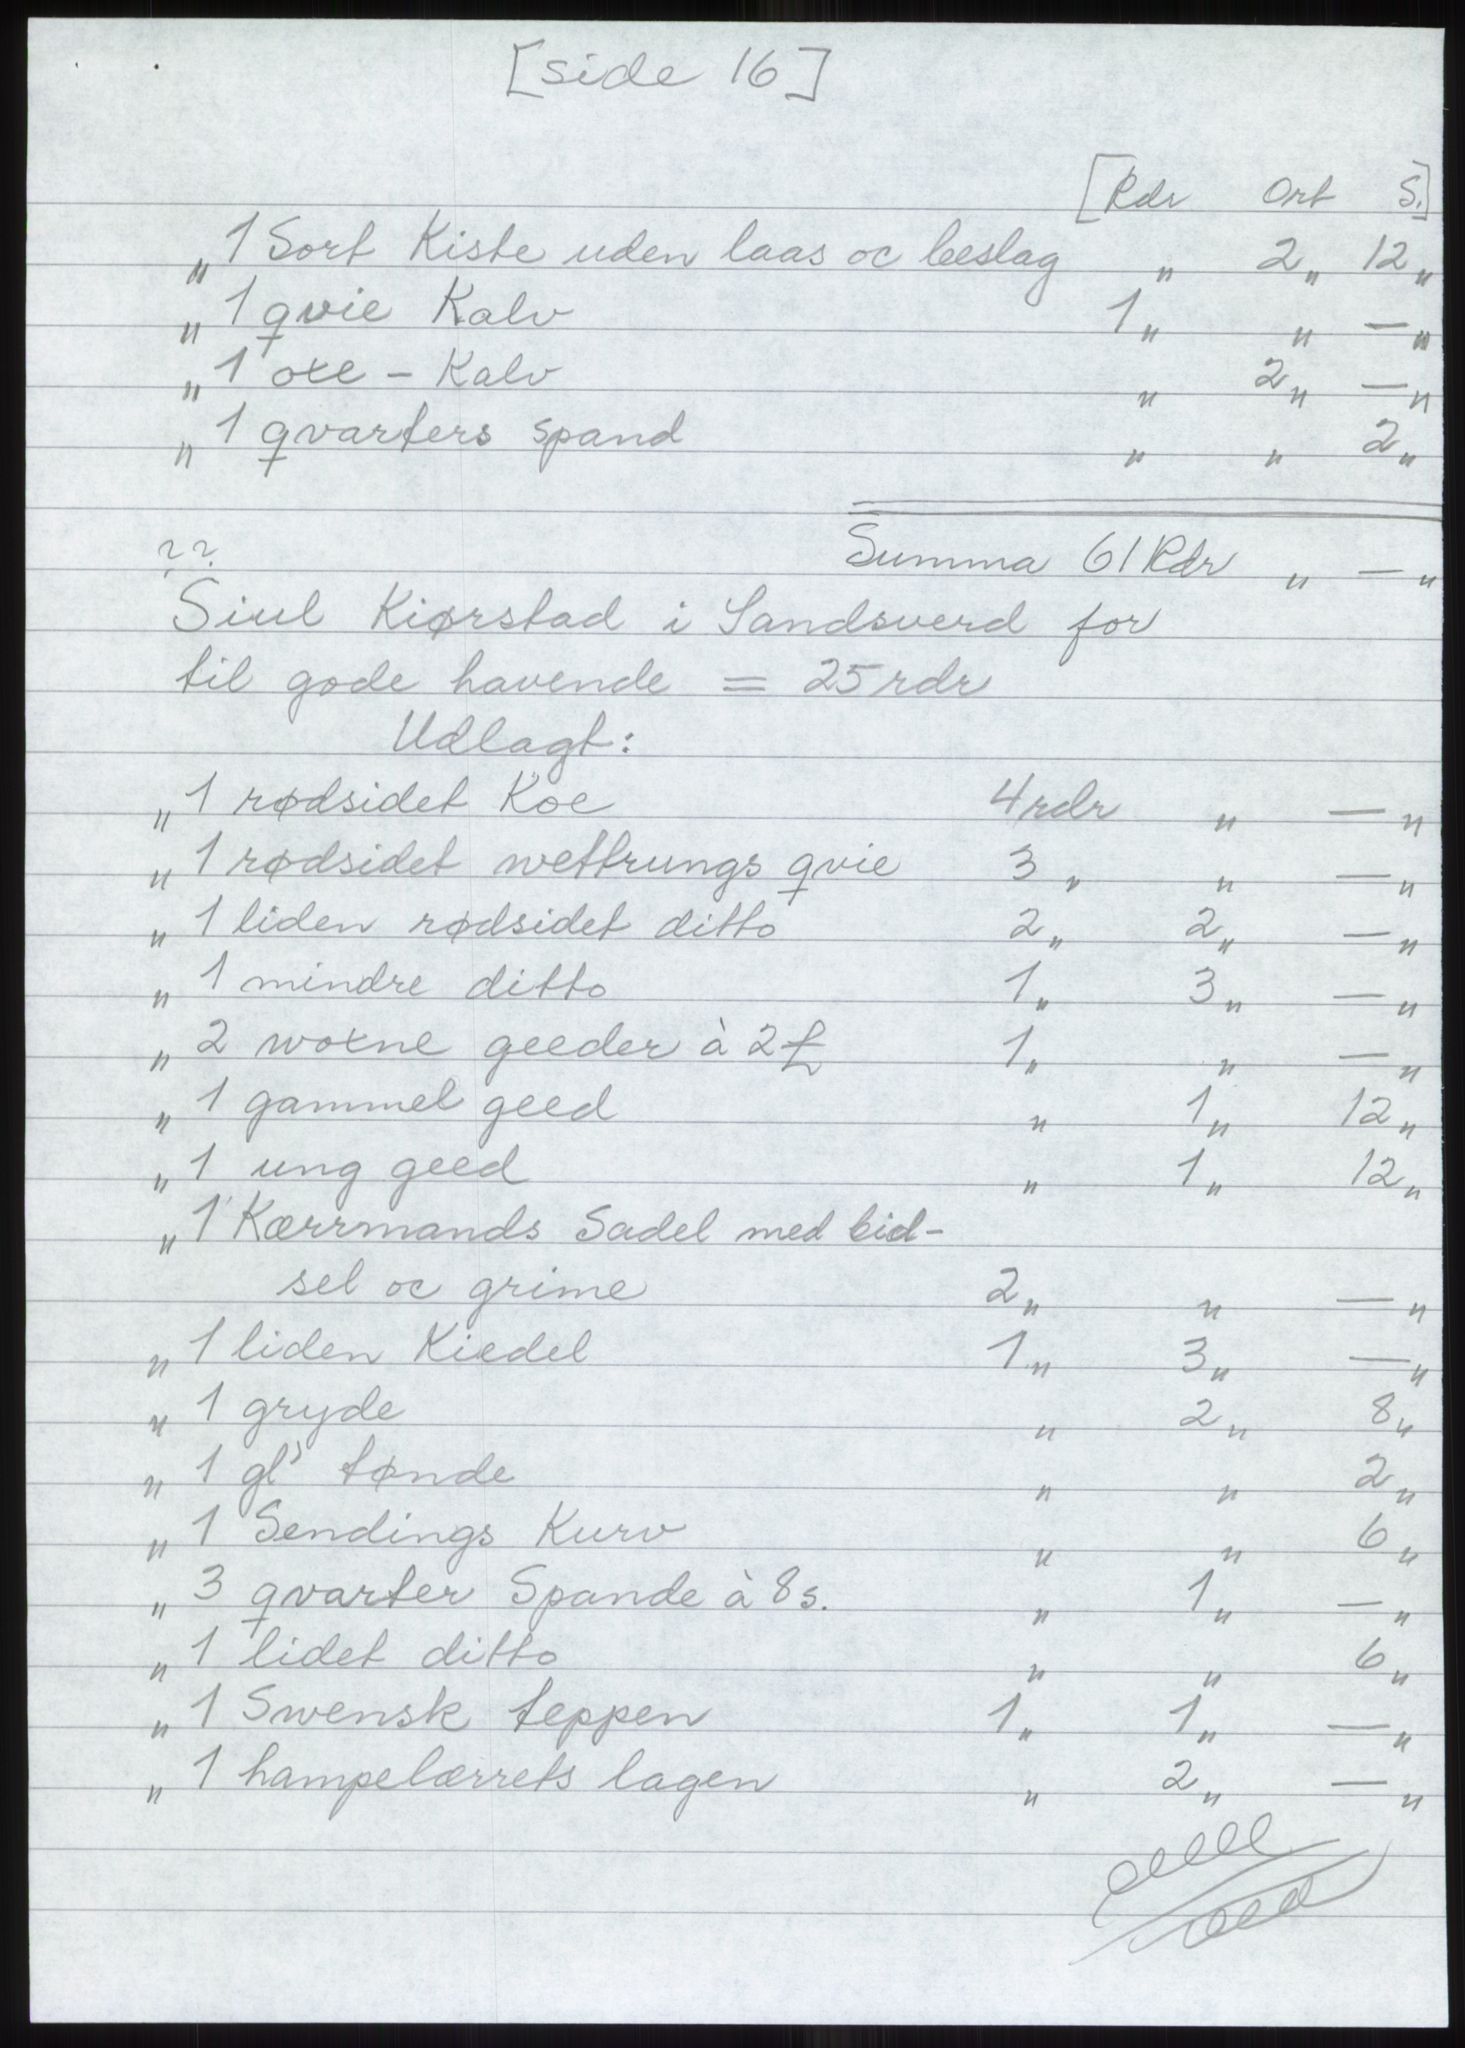 [side 16]
[Rdr Ort S.]
„ 1 Sort Kiste uden laas oc beslag „ 2„ 12„
„ 1 qvie Kalv 1„ „ —„
„ 1 oxe - Kalv „ 2„ —„
„ 1 qvarters spand „ „ 2„
Summa 61 Rdr „ —„
??
Siul Kiørstad i Sandsverd for
til gode havende = 25 rdr
Udlagt:
„ 1 rødsidet Koe 4 rdr „ —„
„ 1 rødsidet wettrungs qvie 3„ „ —„
„ 1 liden rødsidet ditto 2„ 2„ —„
„ 1 mindre ditto 1„ 3„ —„
„ 2 woxne geeder à 2 £ 1„ „ —„
„ 1 gammel geed „ 1„ 12„
„ 1 ung geed „ 1„ 12„
„ 1 Kærrmands Sadel med bid-
sel oc grime 2„ „ —„
„ 1 liden Kiedel 1„ 3„ —„
„ 1 gryde „ 2„ 8„
„ 1 gl' tønde „ „ 2„
„ 1 Sendings Kurv „ „ 6„
„ 3 qvarter Spande à 8 s. „ 1„ —„
„ 1 lidet ditto „ „ 6„
„ 1 Swensk teppen 1„ 1„ —„
„ 1 hampelærrets lagen „ 2„ —„